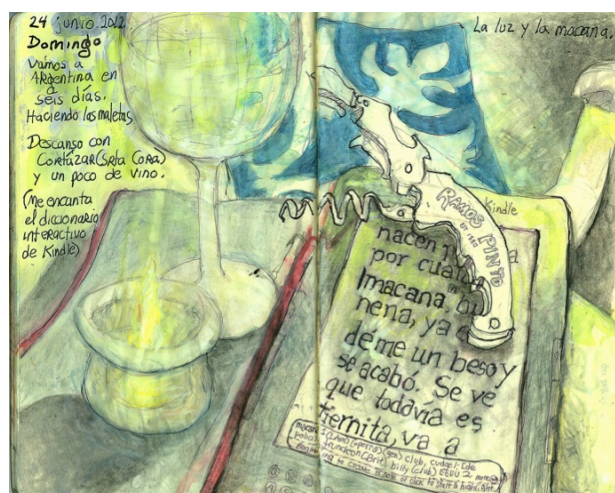 24 junio. 2012
Domingo
Vamos a
Argentina en
seis días.
Haciendo las maletas
Descanso con
Cortázar (Srta Cora)
y un poco de vino.
(Me encanta
el diccionario
interactivo
de Kindle)
La luz y la macana.
Kindle
RAMOS PINTO
nacen
por cuan
macana
nena, ya
déme un beso y
se acabó. Se ve
que todavía es
tiernita, va a
club, cudgel:
billy (club)